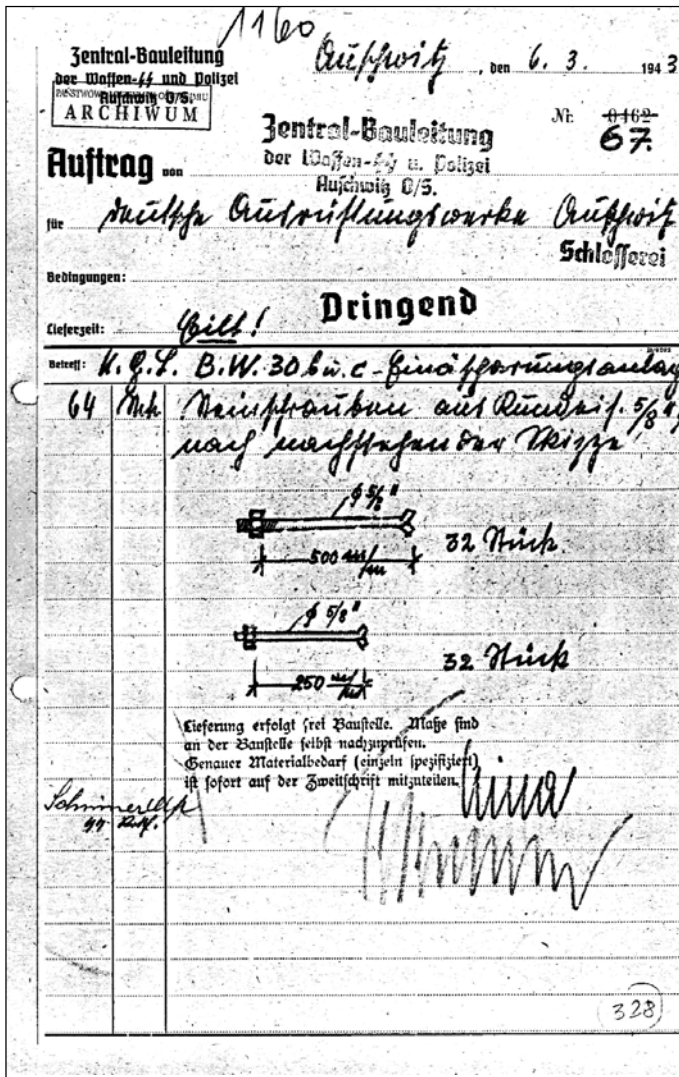 1160
Zentral-Bauleitung
der Waffen-SS und Polizei
Auschwitz O/S.
ARCHIWUM
Auschwitz, den 6. 3. 1943
Nr. 0462
67.
Auftrag von
Zentral-Bauleitung
der Waffen-SS u. Polizei
Auschwitz O/S.
für deutsche Ausrüstungswerke Auschwitz
Schlosserei
Bedingungen:
Dringend
Lieferzeit: Eilt!
Betreff: K.G.L. B.W. 30 b u. c - Einäscherungsanlag
64 Stck Steinschrauben aus Rundeis. 5/8"
nach nachstehender Skizze
φ 5/8"
500 m/m
32 Stück.
φ 5/8"
250 m/m
32 Stück
Lieferung erfolgt frei Baustelle. Maße sind
an der Baustelle selbst nachzuprüfen.
Genauer Materialbedarf (einzeln spezifiziert)
ist sofort auf der Zweitschrift mitzuteilen.
SS
328